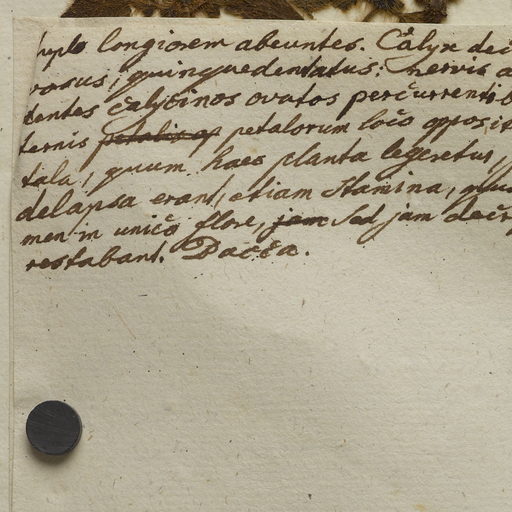 duplo longiorem abeuntes. Calyx dec
rosus, quinquedentatus: nervis a
dentes calycinos ovatos percurrentib
ternis petalis op petalorum loco opposit
tala, quum haec planta legeretur,
delapsa erant, etiam Stamina, quu
men in unico flore, jam sed jam decr
restabant. Dacca.